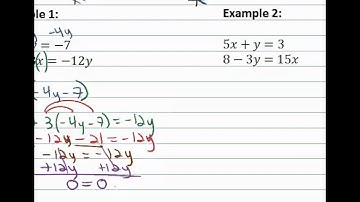 le 1:
-4y
) = -7
(x) = -12y
-4y-7)
3(-4y-7) = -12y
- 12y - 21 = -12y
-12y = -12y
+12y +12y
0 = 0
Example 2:
5x + y = 3
8 − 3y = 15x